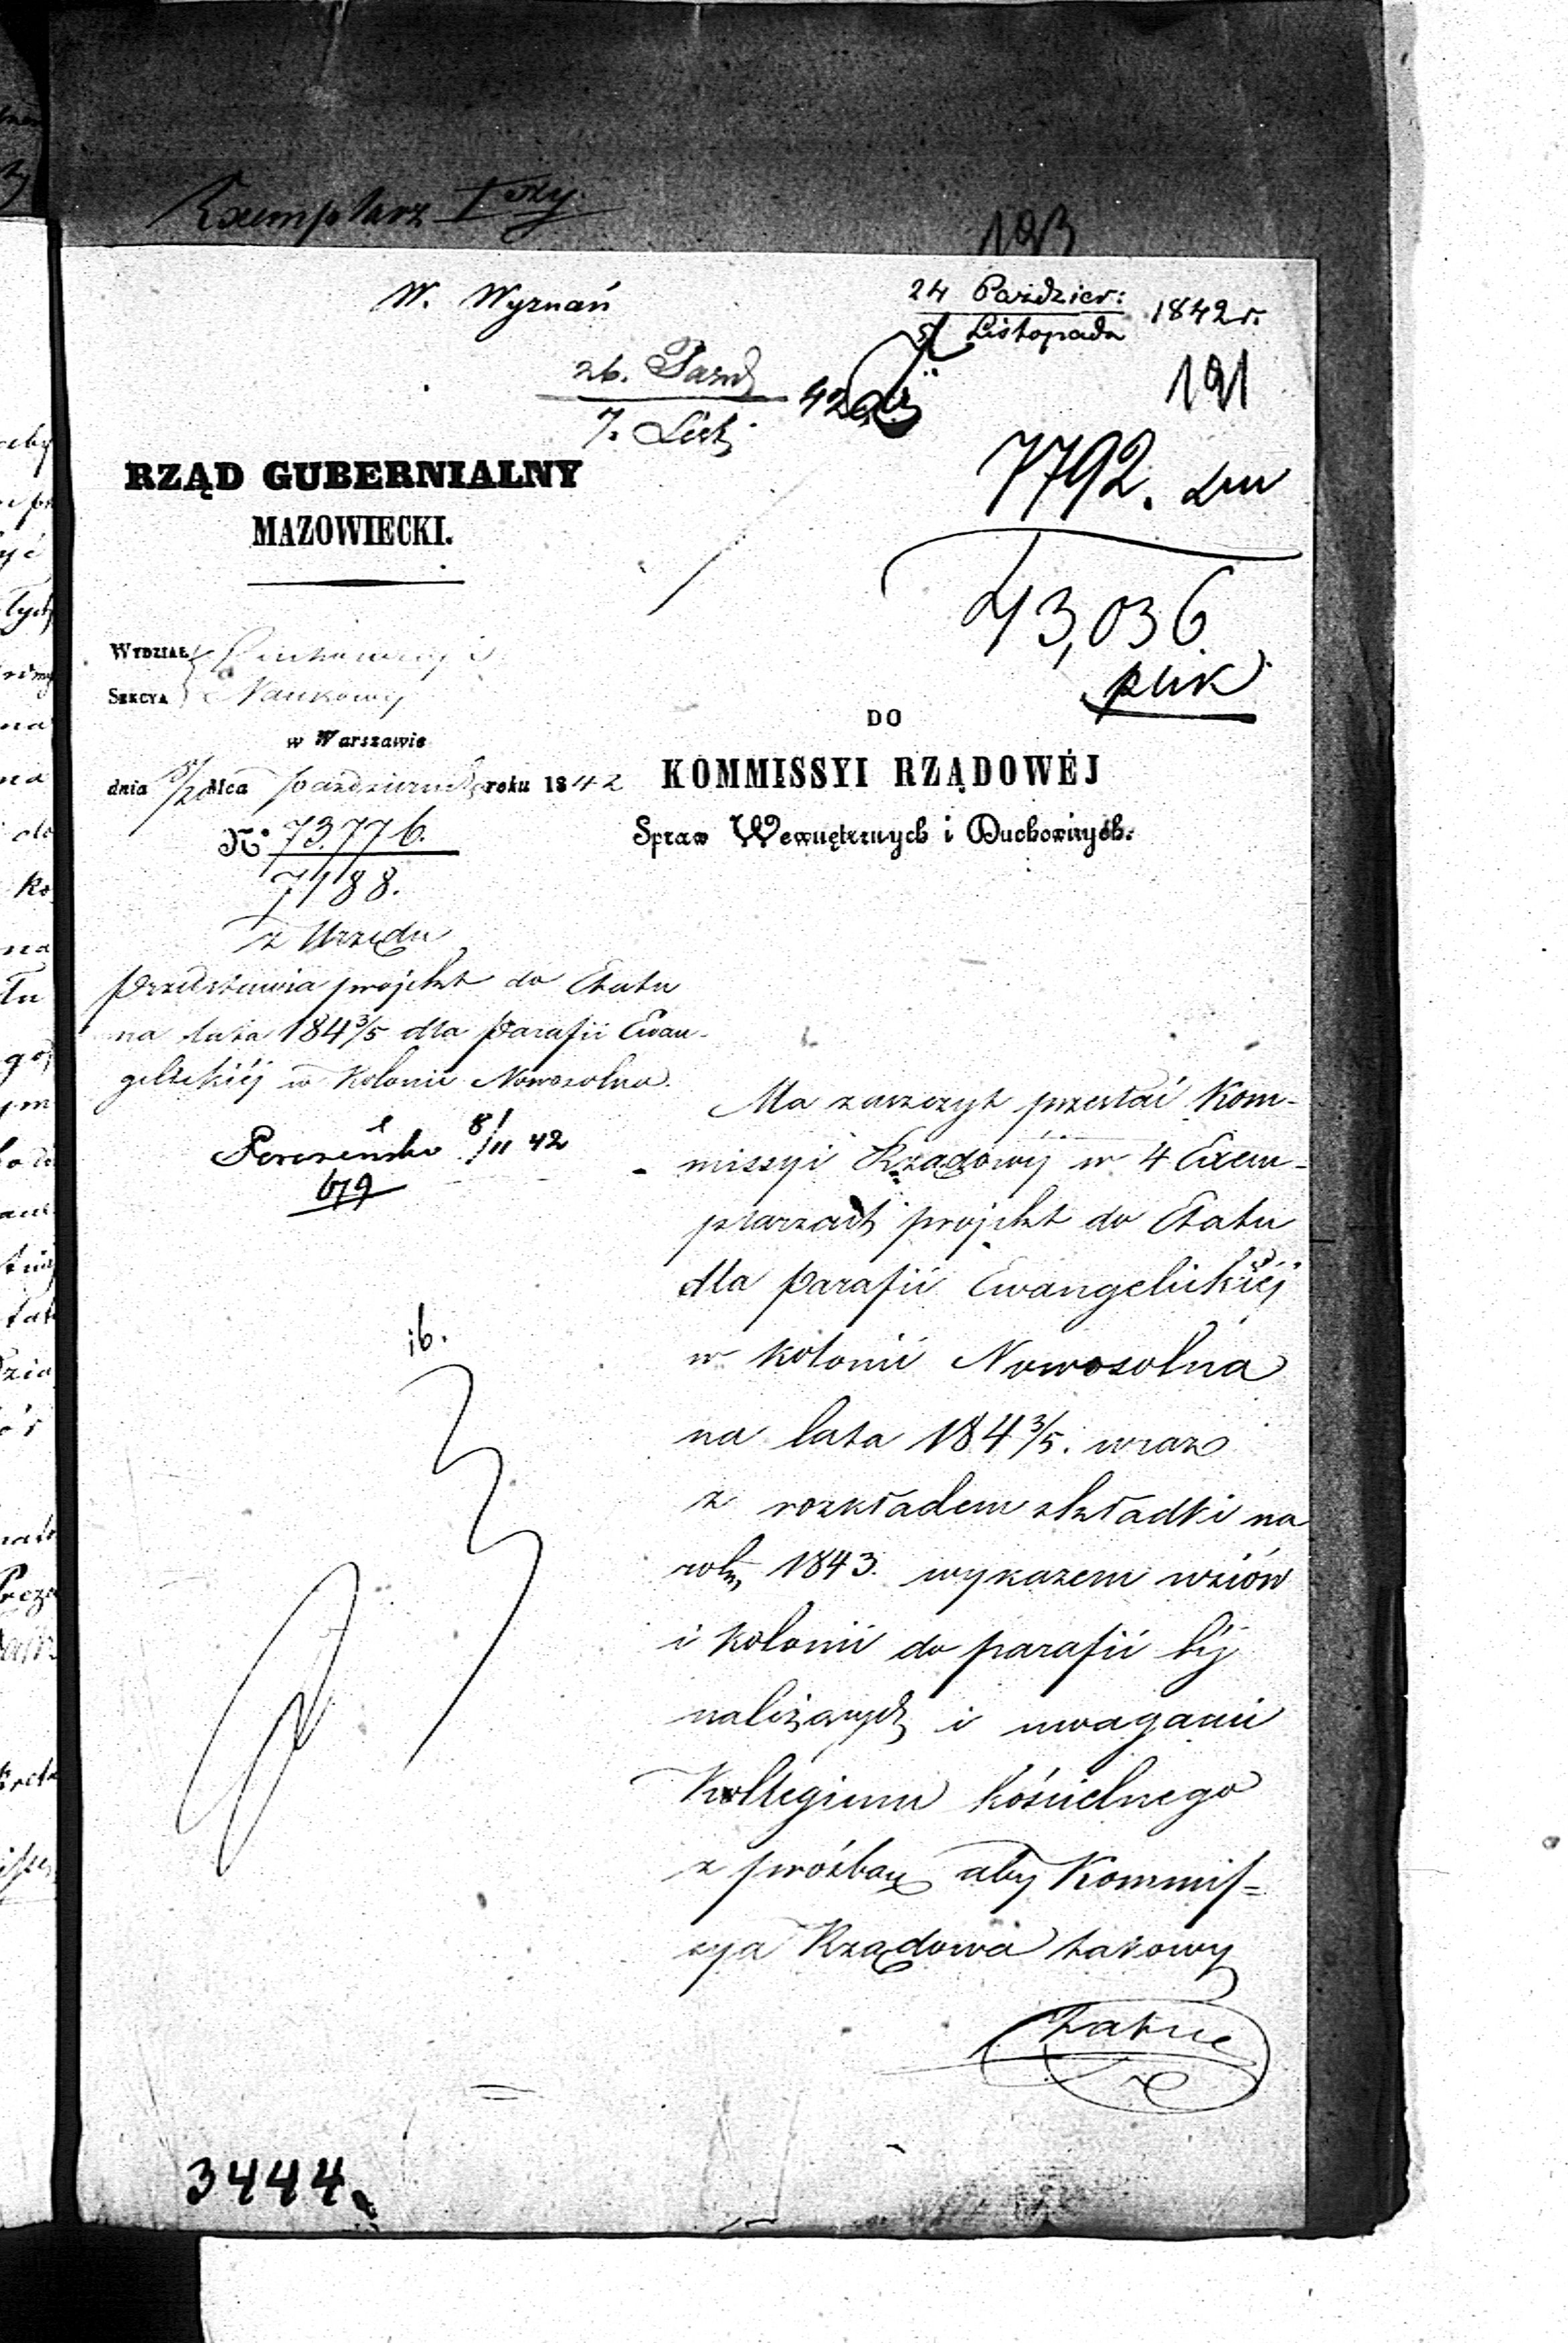 Exemplarz Iszy.
193
W. Wyznań
24 Paździer: 1842 r.
5 Listopada
26. Pazd 42
7. List
191
7792.
43,036
RZĄD GUBERNIALNY
MAZOWIECKI.
WYDZIAŁ
SEKCYA Naukowy
w Warszawie
dnia 8/20 Mca października roku 1842
N: 73776.
7188.
z Urzędu
przedstawia projekt do Etatu
na lata 184 3/5 dla Parafii Ewan-
gelickiéj w Kolonii Nowosolna.
8/11 42
679
ib.
DO
KOMMISSYI RZĄDOWÉJ
Spraw Wewnętrznych i Duchownych.
Ma zaszczyt przesłać Kom-
missyi Rządowéj w 4 Exem-
plarzach projekt do Etatu
dla Parafii Ewangelickiéj
w kolonii Nowosolna
na lata 184 3/5. wraz
z rozkładem składki na
rok 1843. wykazem wsiów
i kolonii do parafii téj
należących i uwagami
Kollegium kościelnego
z prośbą aby Kommis=
sya Rządowa takowy
3444.